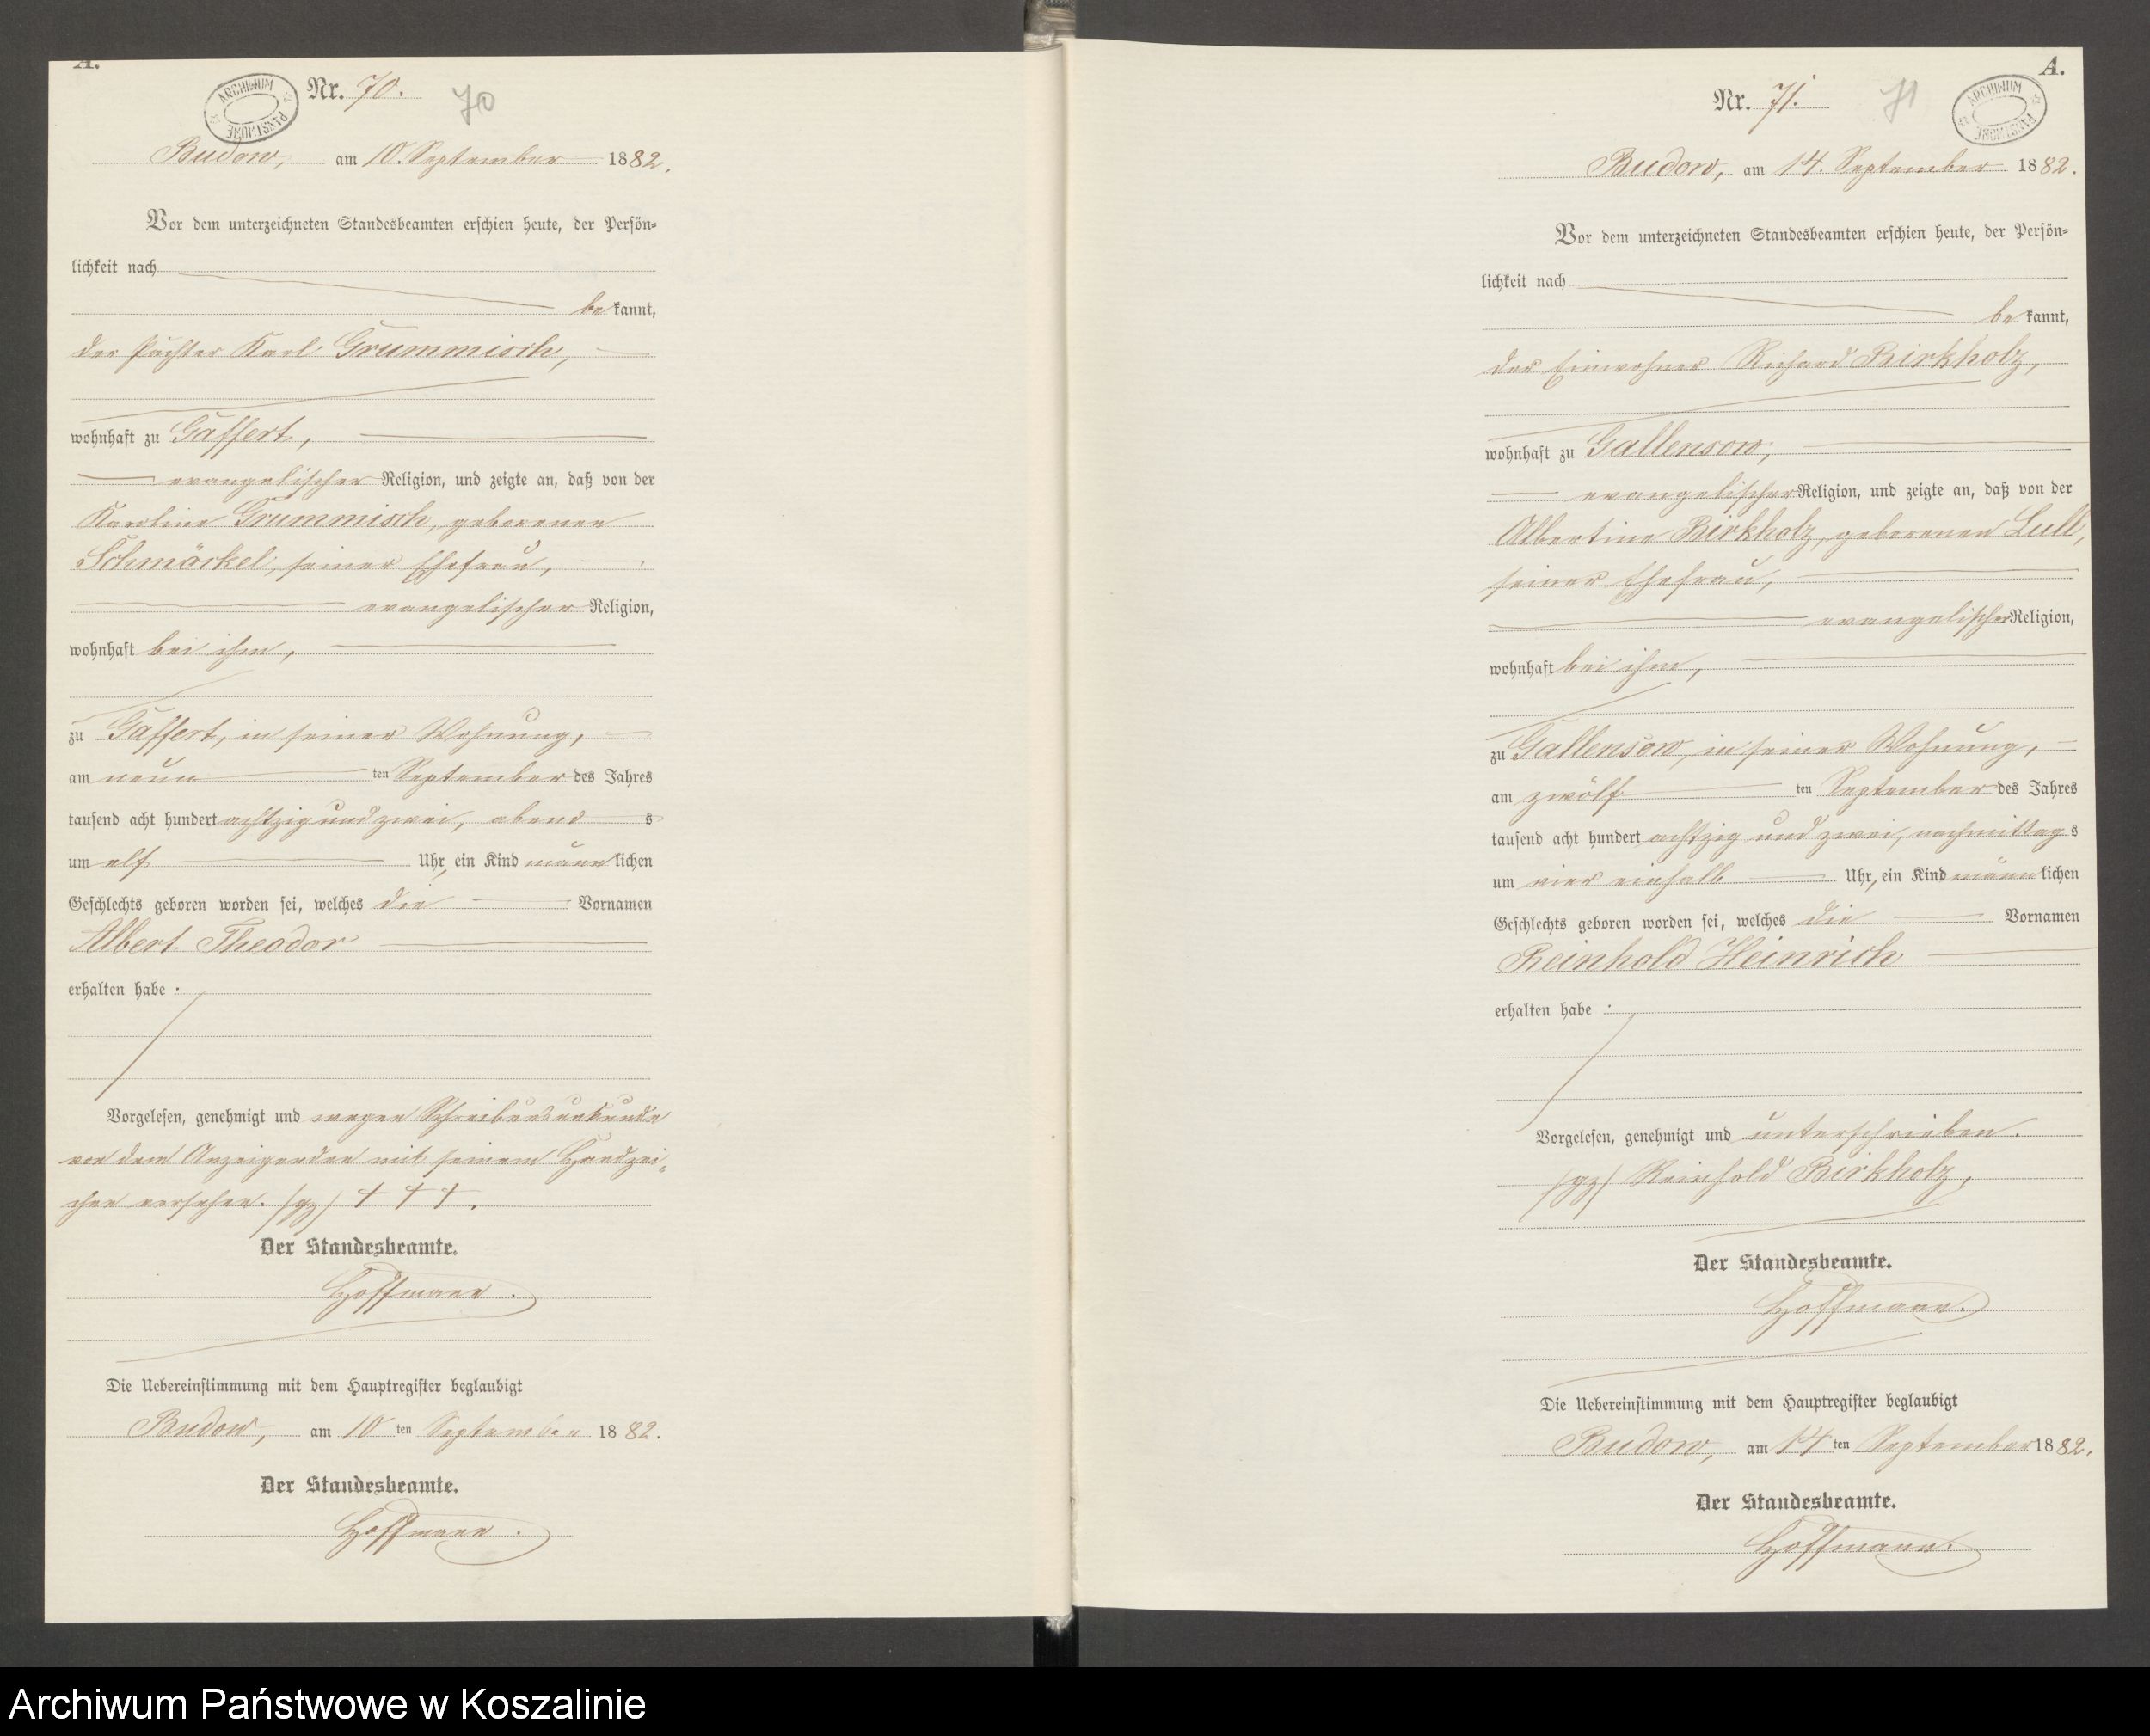 A.
ARCHIWUM PAŃSTWOWE
Nr. 70.
70
Budow, am 10. September 1882.
Vor dem unterzeichneten Standesbeamten erschien heute, der Persön-
lichkeit nach
bekannt,
der Pächter Karl Grummisch,
wohnhaft zu Gaffert,
evangelischer Religion, und zeigte an, daß von der
Karoline Grummisch, geborenen
Schmöckel, seiner Ehefrau,
evangelischer Religion,
wohnhaft bei ihm,
zu Gaffert, in seiner Wohnung,
am neun ten September des Jahres
tausend acht hundert achtzig und zwei, abends
um elf Uhr, ein Kind männlichen
Geschlechts geboren worden sei, welches die Vornamen
Albert Theodor
erhalten habe.
Vorgelesen, genehmigt und wegen Schreibensunkunde
von dem Anzeigenden mit seinem Handzei-
chen versehen. (gz) + + +.
Der Standesbeamte.
Hoffmann.
Die Uebereinstimmung mit dem Hauptregister beglaubigt
Budow, am 10 ten September 1882.
Der Standesbeamte.
Hoffmann.
A.
ARCHIWUM PAŃSTWOWE
Nr. 71.
71
Budow, am 14. September 1882.
Vor dem unterzeichneten Standesbeamten erschien heute, der Persön-
lichkeit nach
bekannt,
der Einwohner Richard Birkholz,
wohnhaft zu Gallensow,
evangelischer Religion, und zeigte an, daß von der
Albertine Birkholz, geborenen Lull,
seiner Ehefrau,
evangelischer Religion,
wohnhaft bei ihm,
zu Gallensow, in seiner Wohnung,
am zwölf ten September des Jahres
tausend acht hundert achtzig und zwei, nachmittags
um vier einhalb Uhr, ein Kind männlichen
Geschlechts geboren worden sei, welches die Vornamen
Reinhold Heinrich
erhalten habe.
Vorgelesen, genehmigt und unterschrieben.
(gz) Reinhold Birkholz,
Der Standesbeamte.
Hoffmann.
Die Uebereinstimmung mit dem Hauptregister beglaubigt
Budow, am 14 ten September 1882.
Der Standesbeamte.
Hoffmann.
Archiwum Państwowe w Koszalinie